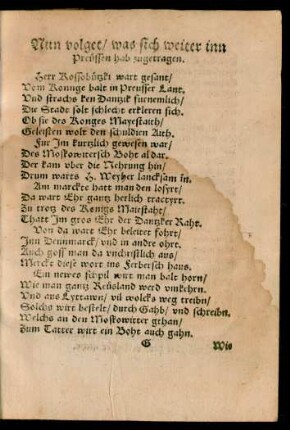 Nun volget/ was sich weiter inn
Preüssen hab zugetragen.
Herr Kossobützki wart gesant/
Vom Konnge bait in Preusser Lant.
Vnd strachs ken Dantzik furnemlich/
Die Stadt solt schlecht erkleren sich.
Ob sie des Konges Mayestaith/
Geleisten wolt den schuldien Aith.
Fur Im kurtzlich gewesen war/
Des Moskowitersch Boht al dar.
Der kan vber die Nehrung hin/
Drum warts H. Weyher lancksam in.
Am marckte hatt man den losyrt/
Da wart Ehr gantz herlich tractyrt.
Zu trotz des Konigs Maiestaht/
Thatt Im gros Ehr der Dantzker Raht.
Von da wart Ehr beleitet fohrt/
Inn Dennmarck/ vnd in andre ohrt.
Auch goss man da vnchristlich aus/
Merckt diese wort ins Ferbersch haus.
Ein newes schpil wirt man balt horn/
Wie man gantz Reüsland werd vmkehrn.
Vnd aus Lyttawn/ vil wolcks weg treibn/
Solchs wirt bestelt/ durch Gahb/ vnd schreibn.
Welchs an den Moskowitter gthan/
Zum Tatter wirt ein Boht auch gahn.
G Wie